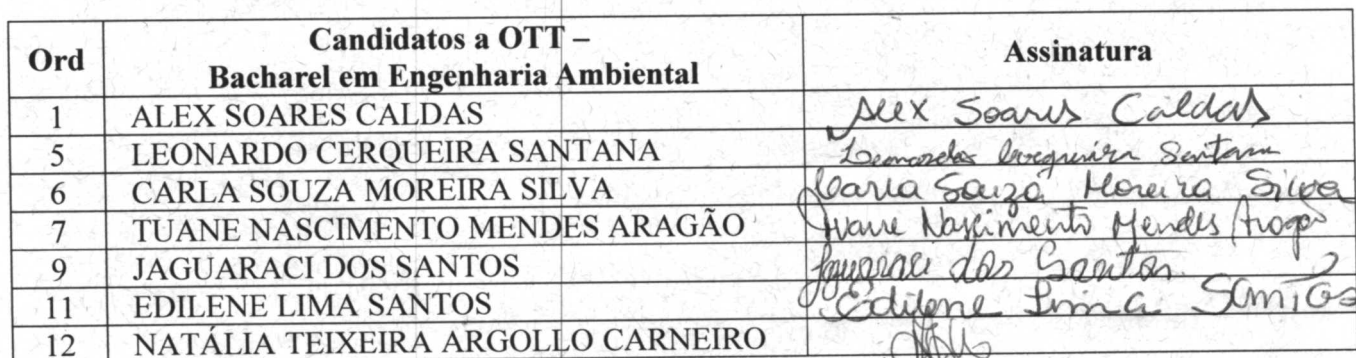 Ord Candidatos a OTT – Assinatura
Bacharel em Engenharia Ambiental
1 ALEX SOARES CALDAS Alex Soares Caldas
5 LEONARDO CERQUEIRA SANTANA Leonardo Cerqueira Santana
6 CARLA SOUZA MOREIRA SILVA Carla Souza Moreira Silva
7 TUANE NASCIMENTO MENDES ARAGÃO Tuane Nascimento Mendes Aragão
9 JAGUARACI DOS SANTOS Jaguaraci dos Santos
11 EDILENE LIMA SANTOS Edilene Lima Santos
12 NATÁLIA TEIXEIRA ARGOLLO CARNEIRO